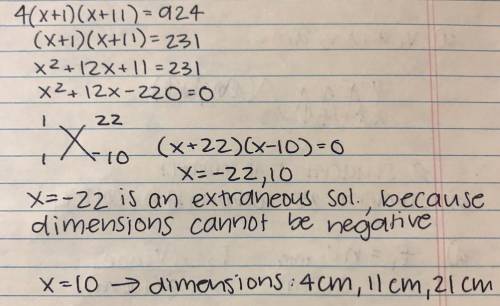 4(x+1)(x+11)=924
(x+1)(x+11)=231
x²+12x+11=231
x²+12x-220=0
1 22
1 -10 (x+22)(x-10)=0
x=-22,10
x=-22 is an extraneous sol., because
dimensions cannot be negative
x=10 → dimensions: 4cm, 11cm, 21cm